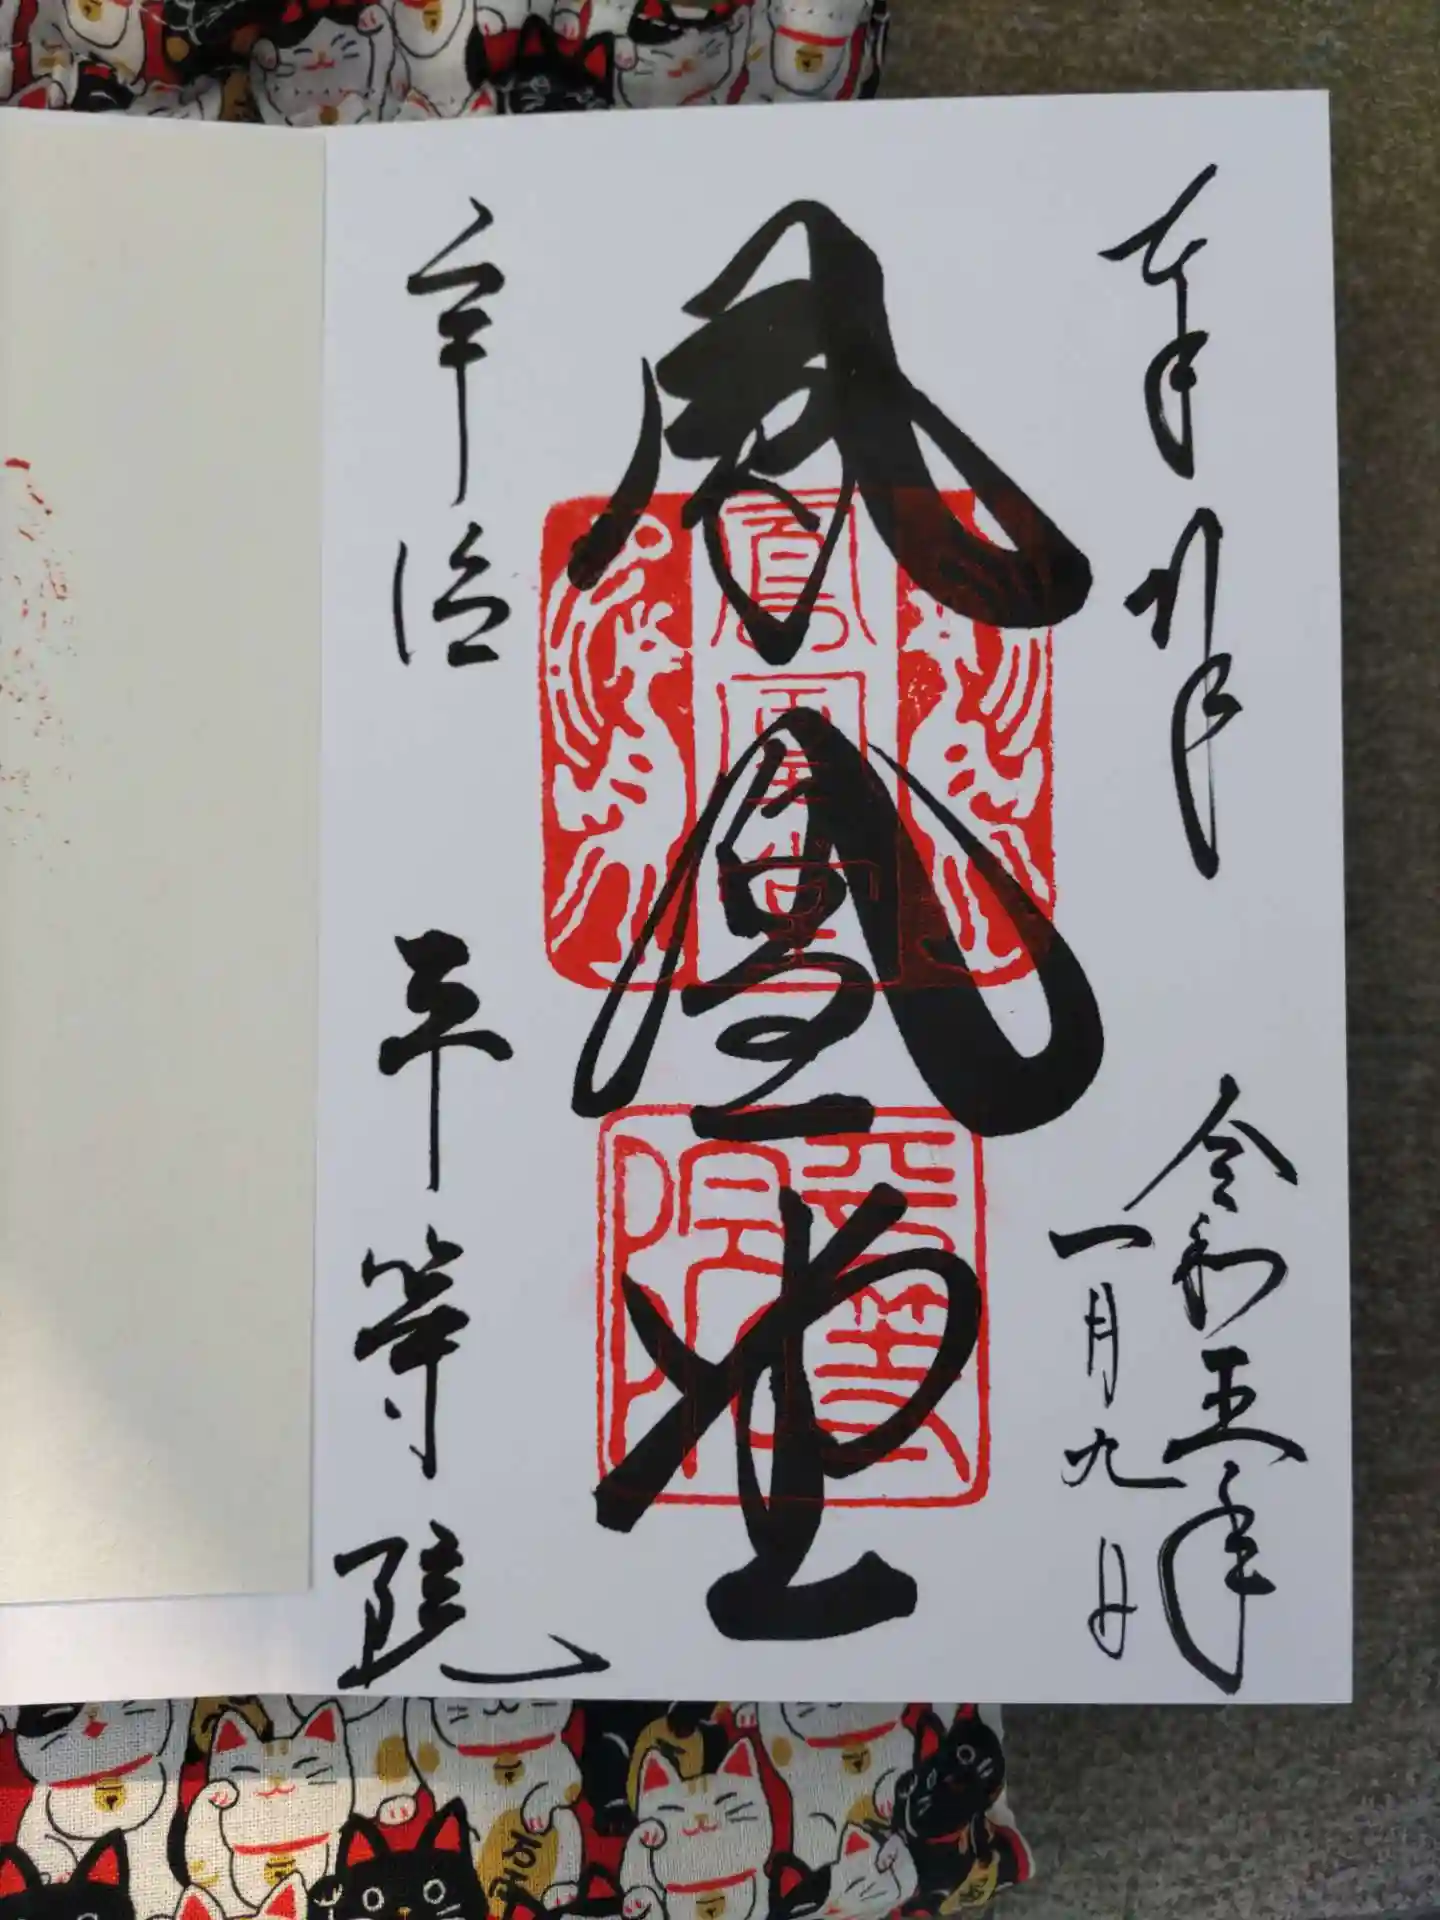 奉拝
令和五年
一月九日
鳳凰堂
鳳凰堂
平等院
宇治
平等院